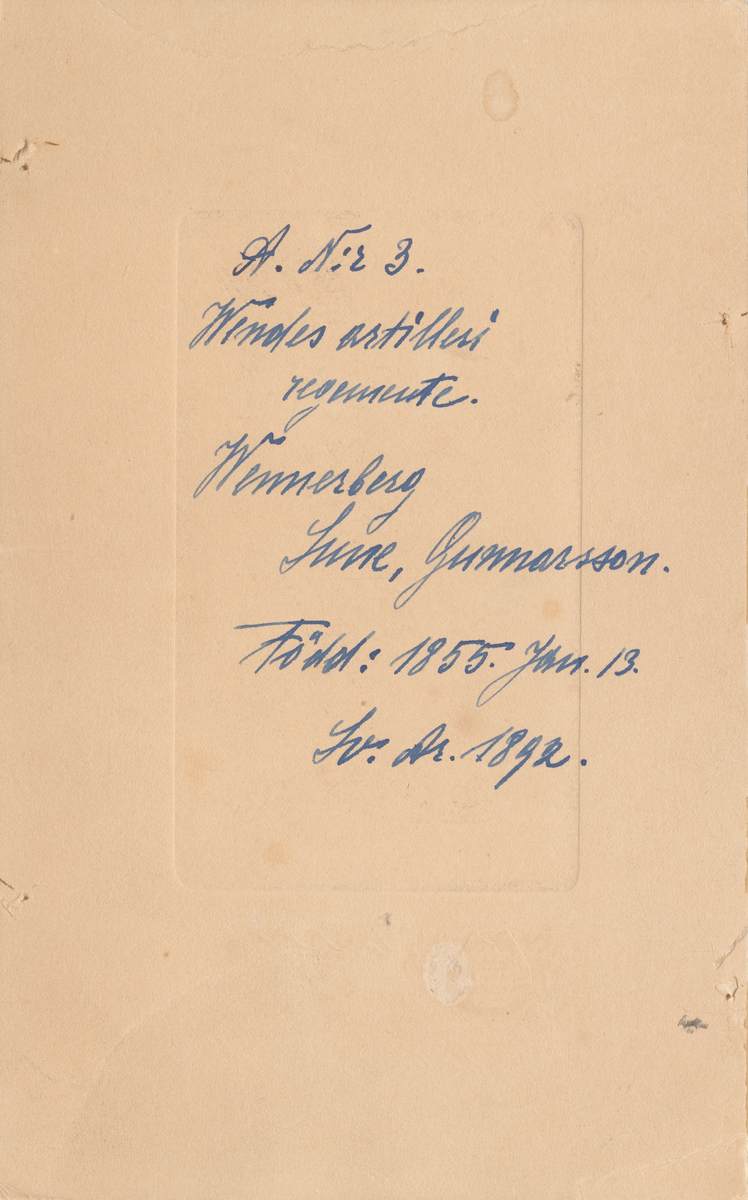 A. N:r 3.
Wendes artilleri
regemente.
Wennerberg
Sune, Gunnarsson.
Född: 1855. Jan. 13.
Lv: Ar. 1892.